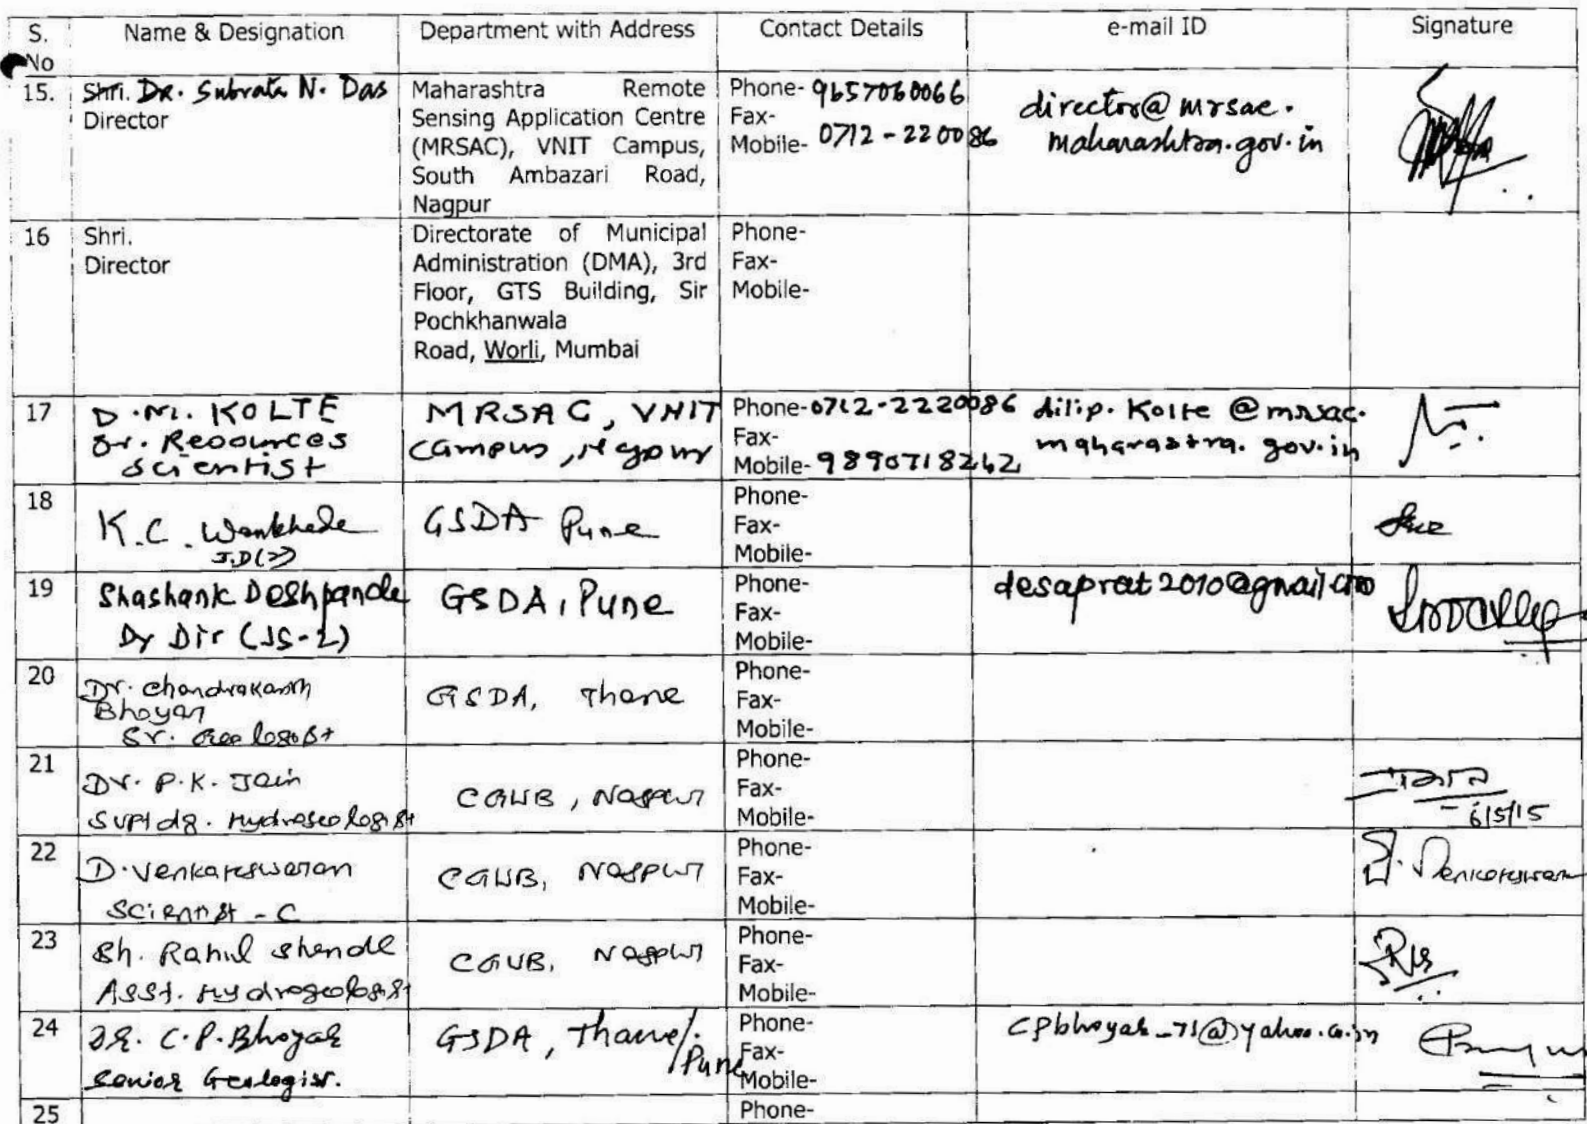 S. No Name & Designation Department with Address Contact Details e-mail ID Signature
15. Shri. DR. Subrata N. Das
Director
Maharashtra Remote
Sensing Application Centre
(MRSAC), VNIT Campus,
South Ambazari Road,
Nagpur
Phone- 9657060066
Fax-
Mobile- 0712-220086
director@mrsac.
maharashtra.gov.in
16 Shri.
Director
Directorate of Municipal
Administration (DMA), 3rd
Floor, GTS Building, Sir
Pochkhanwala
Road, Worli, Mumbai
Phone-
Fax-
Mobile-
17 D.M. KOLTE
Sr. Resources
Scientist
MRSAC, VNIT
Campus, Nagpur
Phone- 0712-2220086
Fax-
Mobile- 9890718242
dilip.Kolte@mrsac.
maharastra.gov.in
18 K.C. Wankhede
J.D
GSDA Pune
Phone-
Fax-
Mobile-
19 Shashank Deshpande
Dy Dir
GSDA, Pune
Phone-
Fax-
Mobile-
desaprat2010@gmail.com
20 Dr. Chandrakanth
Bhoyar
Sr. Geologist
GSDA, Thane
Phone-
Fax-
Mobile-
21 Dr. P.K. Jain
Suptdg. Hydrogeologist
CGWB, Nagpur
Phone-
Fax-
Mobile-
6/5/15
22 D. Venkateswaran
Scientist - C
CGWB, Nagpur
Phone-
Fax-
Mobile-
D. Venkateswaran
23 Sh. Rahul Shende
Asst. Hydrogeologist
CGWB, Nagpur
Phone-
Fax-
Mobile-
24 DR. C.P. Bhoyar
Senior Geologist.
GSDA, Thane/.
Pune
Phone-
Fax-
Mobile-
cpbhoyar_71@yahoo.co.in
25
Phone-